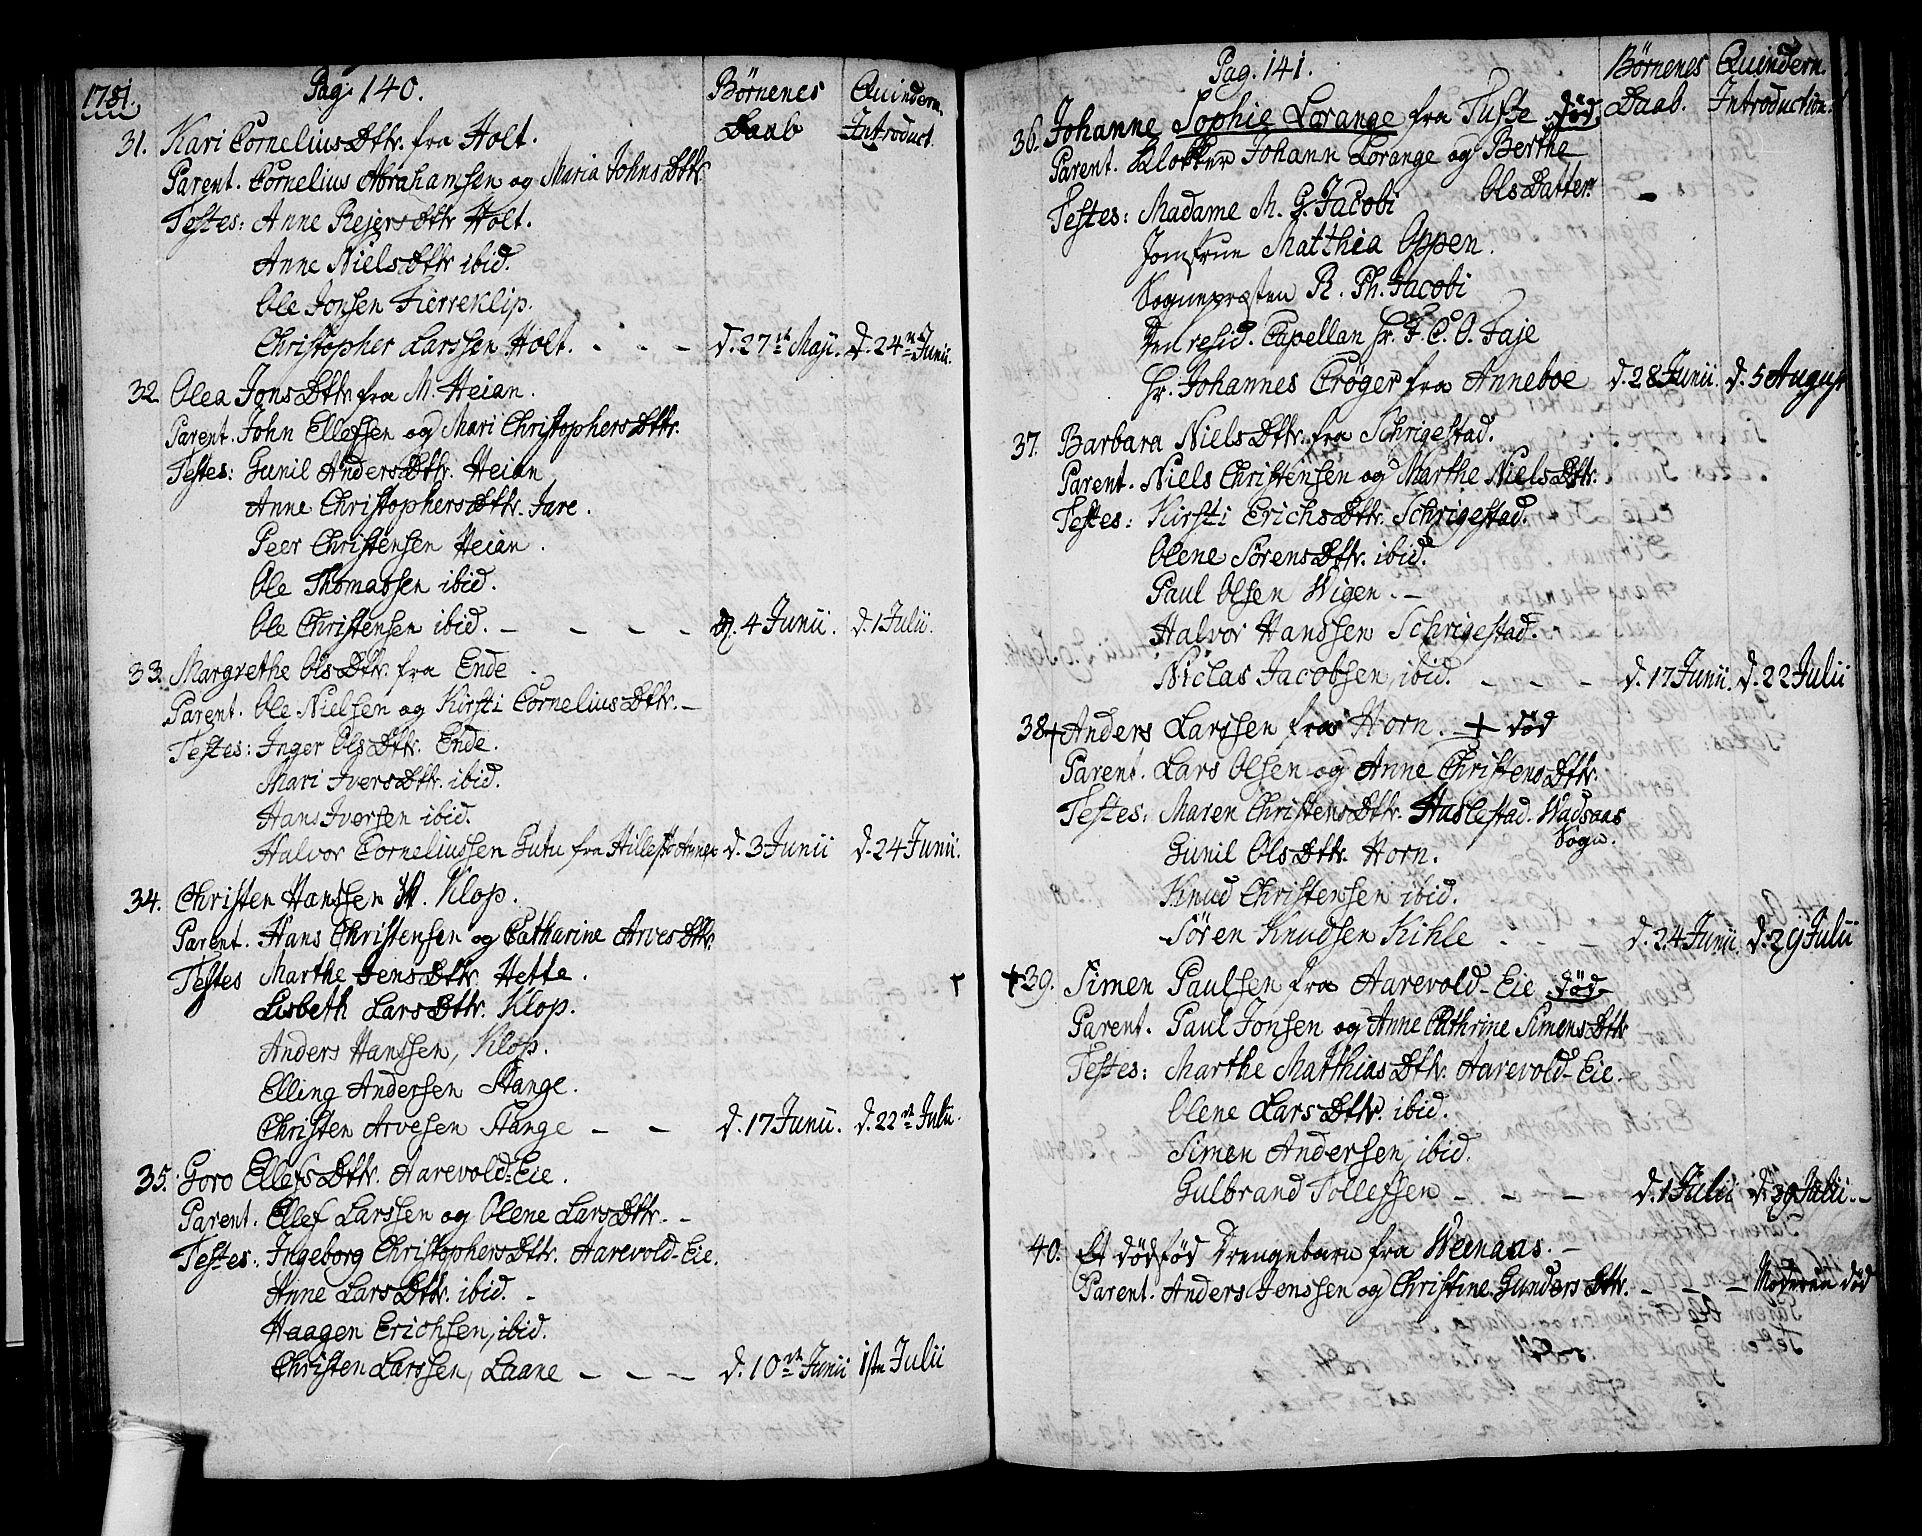 1781. Pag. 140. Børnenes Daab Quindern. Introduct.
31. Kari CorneliusDttr. fra Holt.
Parent. Cornelius Abrahamsen og Maria JohnsDttr.
Testes: Anne RejersDttr Holt.
Anne NielsDttr ibid.
Ole Jonsen Fierreklip.
Christopher Larssen Holt. - - - D. 27de Maji. D. 24de Junii.
32. Olea JonsDttr fra M. Heian.
Parent. John Ellefsen og Mari ChristophersDttr.
Testes: Gunil AndersDttr. Heian
Anne ChristophersDttr. Jare.
Peer Christensen Heian.
Ole Thomassen ibid.
Ole Christensen ibid. - - - - D. 4 Junii. D. 1 Julii.
33. Margrethe OlsDttr. fra Ende
Parent. Ole Nielsen og Kirsti CorneliusDttr. -
Testes: Inger OlsDttr. Ende.
Mari IversDttr. ibid.
Hans Iversen ibid.
Halvor Corneliussen Gutu fra Hillest. D. 3 Junii D. 24 Junii.
34. Christen Hanssen Klop.
Parent. Hans Christensen og Catharine ArvesDttr.
Testes Marthe JensDttr. Hette.
Lisbeth LarsDttr. Klop.
Anders Hanssen, Klop.
Elling Andersen Stange.
Christen Arvesen Stange - - D. 17 Junii. D. 22de Julii.
35. Goro EllefsDttr. Aarevold-Eie.
Parent. Ellef Larssen og Olene LarsDttr. -
Testes: Ingeborg ChristophersDttr. Aarevold-Eie.
Anne LarsDttr. ibid. -
Haagen Erichsen, ibid.
Christen Larssen, Laane - - - D. 10de Junii 1ste Julii
Pag. 141. Børnenes Daab. Quindern. Introduction.
36. Johanne Sophie Lorange fra Tufte død
Parent. Klokker Johann Lorange og Berthe
OlsDatter.
Testes: Madame M. G. Jacobi
Jomfrue Matthia Oppen.
Sognepræsten R. Ph. Jacobi
Den resid. Capellan Hr. F. C. O. Faje
Hr. Johannes Crøger fra Anneboe D. 28 Junii. D. 5 August
37. Barbara NielsDttr. fra Schrigestad.
Parent. Niels Christensen og Marthe NielsDttr.
Testes: Kirsti ErichsDttr. Schrigestad.
Olene SørensDttr. ibid.
Paul Olsen Wigen. -
Halvor Hanssen Schrigestad.
Niclas Jacobsen, ibid. - - - D. 17 Junii. D. 22 Julii
38 + Anders Larssen fra Horn. + død
Parent. Lars Olsen og Anne ChristensDttr.
Testes: Maren ChristensDttr. Huslestad. Wadsaas
Sogn.
Gunil OlsDttr. Horn.
Knud Christensen ibid.
Søren Knudsen Kihle - - - D. 24 Junii. D. 29 Julii
+ 39. Simen Paulsen fra Aarevold-Eie død
Parent. Paul Jonsen og Anne Cathrine SimensDttr
Testes: Marthe MatthiasDttr. Aarevold-Eie.
Olene LarsDttr. ibid.
Simen Andersen, ibid.
Gulbrand Tollefsen - - - D. 1 Julii D. 29 Julii. -
40. Et dødfød Drengebarn fra Weenaas. -
Parent. Anders Jenssen og Christine GundersDttr. - - - Moderen død